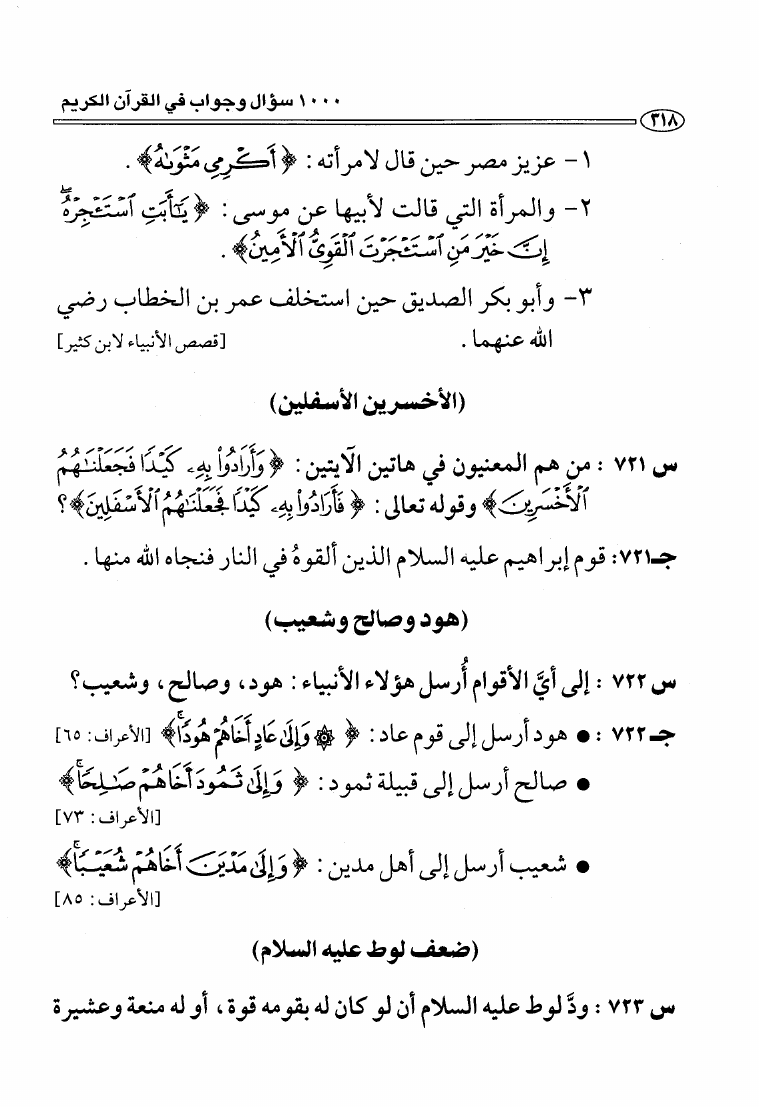 ١٠٠٠ سؤال وجواب في القرآن الكريم
٣١٨
١- عزيز مصر حين قال لامرأته : ﴿ أَكْرِمِي مَثْوَىٰهُ﴾ .
٢- والمرأة التي قالت لأبيها عن موسى : ﴿ يَٰٓأَبَتِ ٱسْتَـْٔجِرْهُ ۖ
إِنَّ خَيْرَ مَنِ ٱسْتَـْٔجَرْتَ ٱلْقَوِىُّ ٱلْأَمِينُ﴾ .
٣- وأبو بكر الصديق حين استخلف عمر بن الخطاب رضي
الله عنهما . [قصص الأنبياء لابن كثير]
(الأخسرين الأسفلين)
س ٧٢١ : من هم المعنيون في هاتين الآيتين : ﴿ وَأَرَادُوا۟ بِهِۦ كَيْدًا فَجَعَلْنَٰهُمُ
ٱلْأَخْسَرِينَ﴾ وقوله تعالى : ﴿ فَأَرَادُوا۟ بِهِۦ كَيْدًا فَجَعَلْنَٰهُمُ ٱلْأَسْفَلِينَ﴾ ؟
جـ٧٢١: قوم إبراهيم عليه السلام الذين ألقوهُ في النار فنجاه الله منها .
(هود وصالح وشعيب)
س ٧٢٢ : إلى أيَّ الأقوام أُرسل هؤلاء الأنبياء : هود، وصالح، وشعيب؟
جـ ٧٢٢ : ● هود أرسل إلى قوم عاد : ﴿ ۞ وَإِلَىٰ عَادٍ أَخَاهُمْ هُودًا ۚ﴾ [الأعراف: ٦٥]
● صالح أرسل إلى قبيلة ثمود : ﴿ وَإِلَىٰ ثَمُودَ أَخَاهُمْ صَٰلِحًا ۚ﴾
[الأعراف: ٧٣]
● شعيب أرسل إلى أهل مدين : ﴿ وَإِلَىٰ مَدْيَنَ أَخَاهُمْ شُعَيْبًا ۚ﴾
[الأعراف: ٨٥]
(ضعف لوط عليه السلام)
س ٧٢٣ : ودَّ لوط عليه السلام أن لو كان له بقومه قوة، أو له منعة وعشيرة